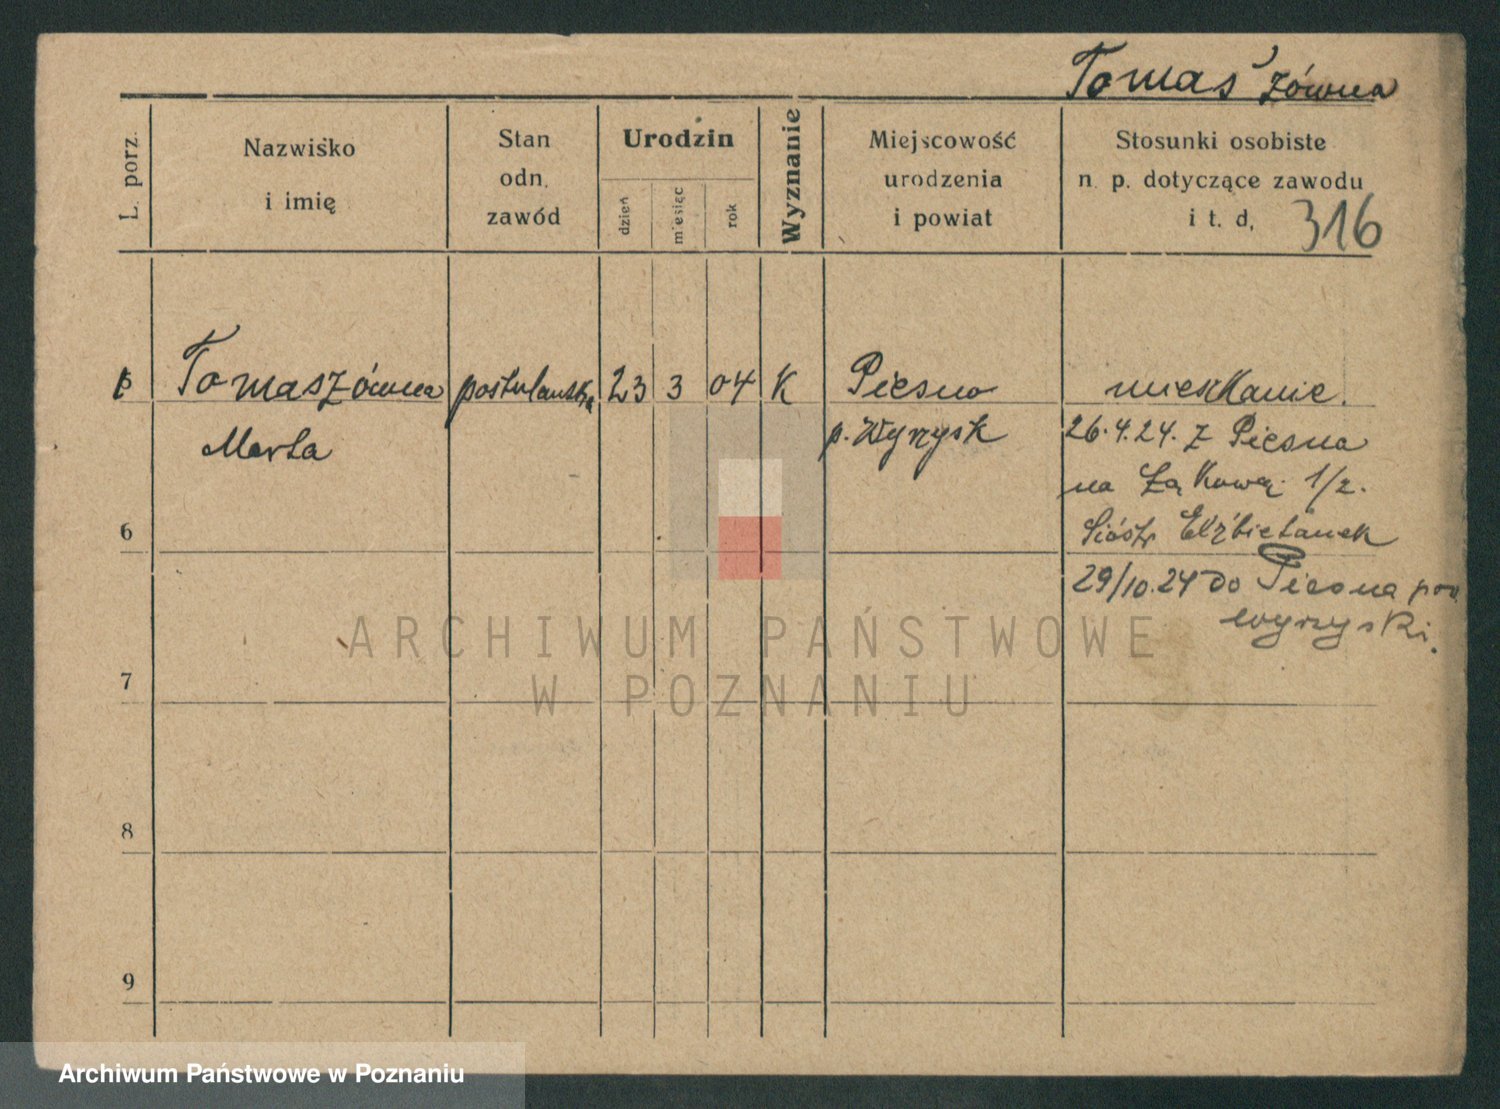 Tomaszówna
L. porz.
Nazwisko
i imię
Stan
odn.
zawód
Urodzin
dzień
miesięc
rok
Wyznanie
Miejscowość
urodzenia
i powiat
Stosunki osobiste
n. p. dotyczące zawodu
i t. d.
316
5 Tomaszówna postulantka 23 3 04 K Piesno mieszkanie.
Marta p. Wyrzysk 26.4.24. z Piesna
na Łąkową 1/2.
6 Sióstr Elżbietanek
29/10.24 do Piesna pow.
wyrzyski.
ARCHIWUM PAŃSTWOWE
W POZNANIU
7
8
9
Archiwum Państwowe w Poznaniu